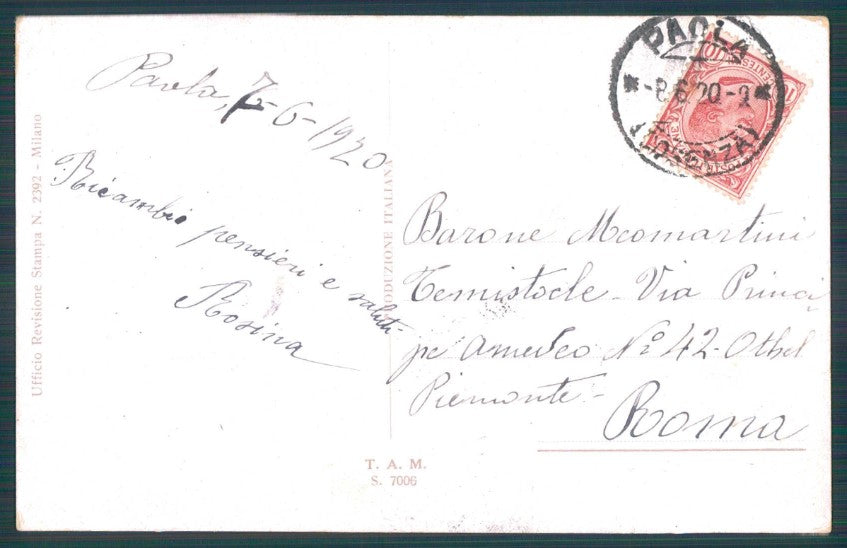 Paola, 7-6-1920
Ricambio pensieri e saluti
Rosina
Ufficio Revisione Stampa N. 2392 - Milano
PRODUZIONE ITALIANA
T. A. M.
S. 7006
PAOLA
-8.6.20-
(COSENZA)
Barone Meomartini
Temistocle - Via Princi
pe Amedeo Nº 42 - Othel
Piemonte -
Roma